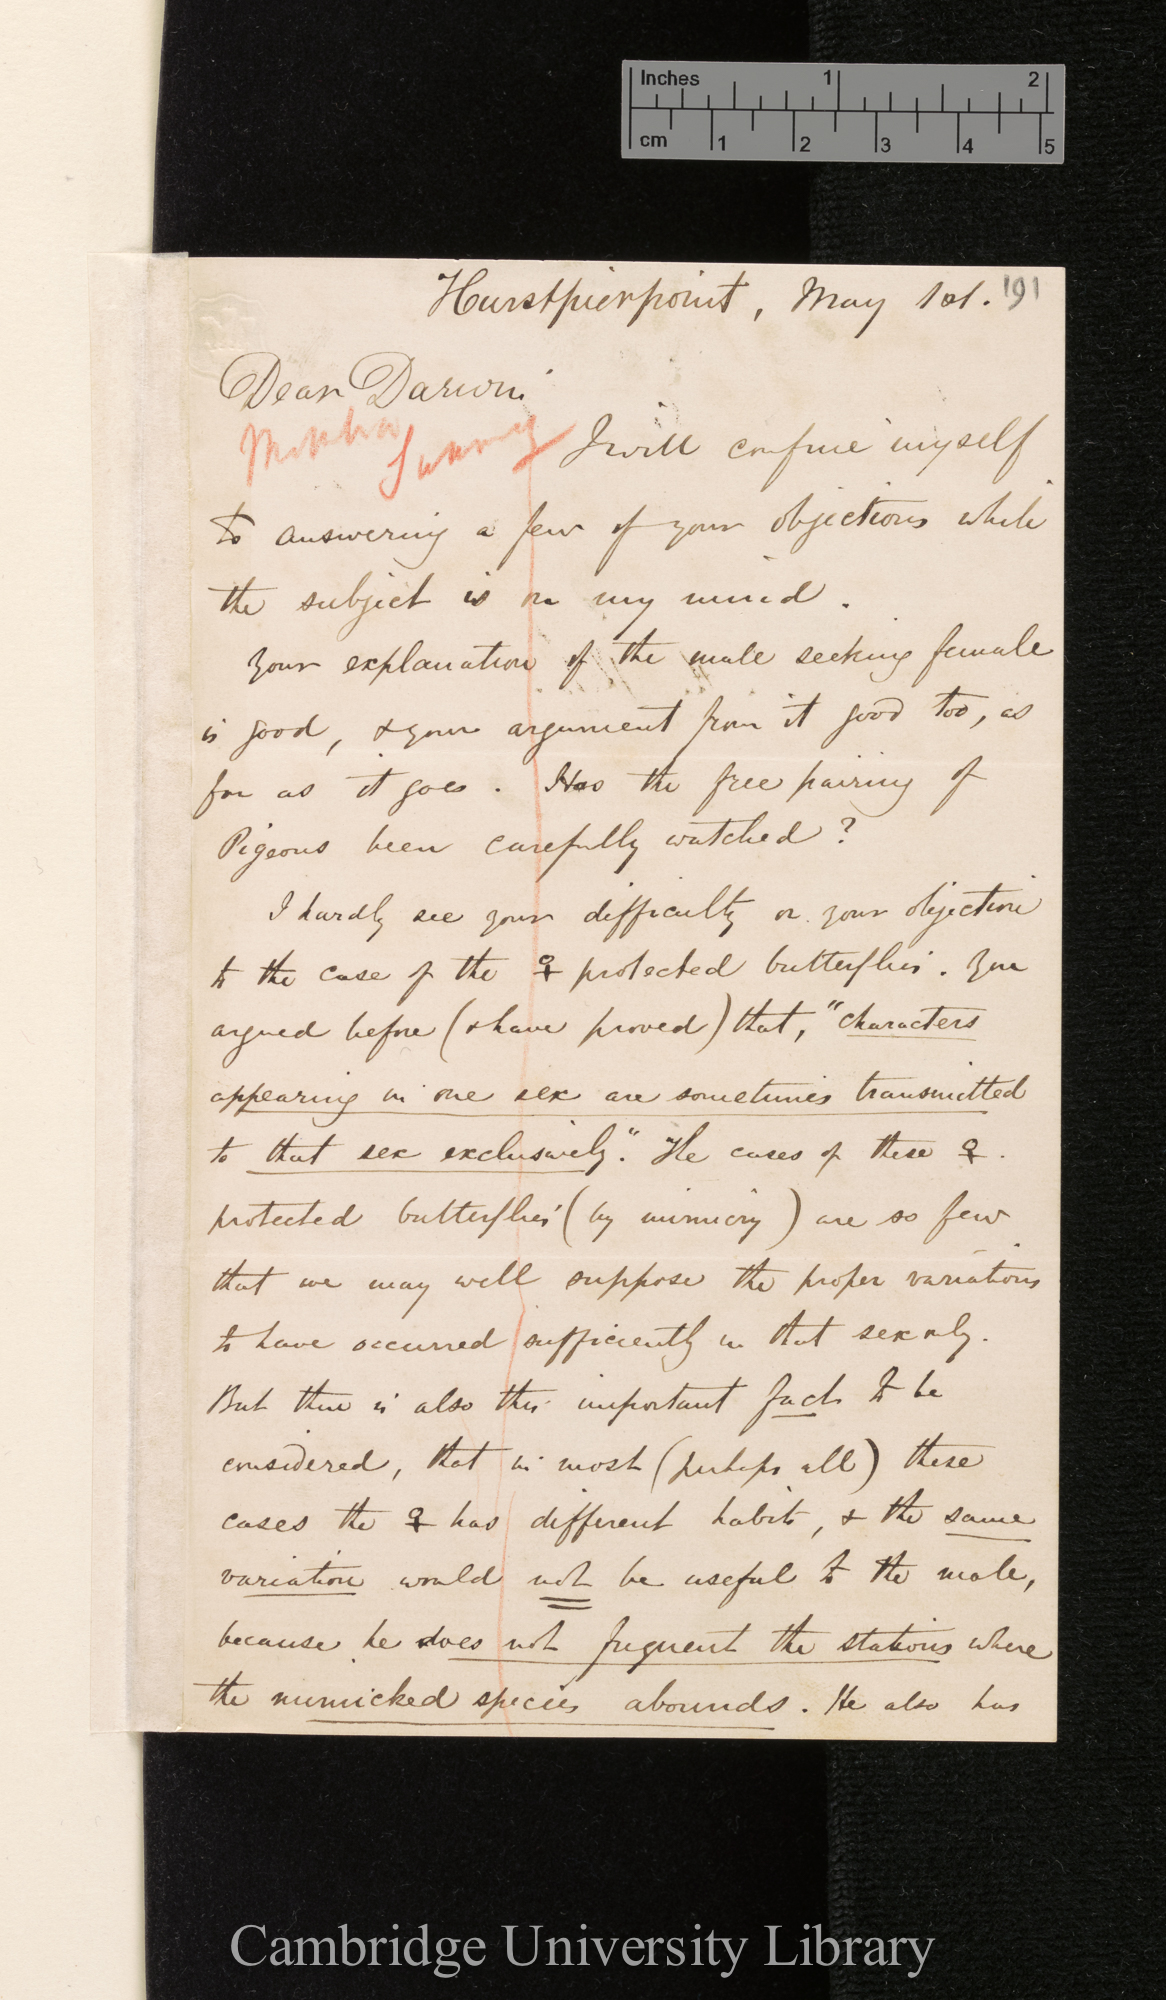 Inches 1 2
cm 1 2 3 4 5
Hurstpierpoint, May 1st. 191
Dear Darwin
I will confine myself
to answering a few of your objections while
the subject is on my mind.
Your explanation of the male seeking female
is good, & your argument from it good too, as
far as it goes. Has the free pairing of
Pigeons been carefully watched?
I hardly see your difficulty or your objection
to the case of the ♀ protected butterflies. You
argued before (& have proved) that, "characters
appearing in one sex are sometimes transmitted
to that sex exclusively". The cases of these ♀.
protected butterflies (by mimicry) are so few
that we may well suppose the proper variations
to have occurred sufficiently in that sex only.
But there is also this important fact to be
considered, that in most (perhaps all) these
cases the ♀ has different habits, & the same
variation would not be useful to the male,
because he does not frequent the stations where
the mimicked species abounds. He also has
Cambridge University Library